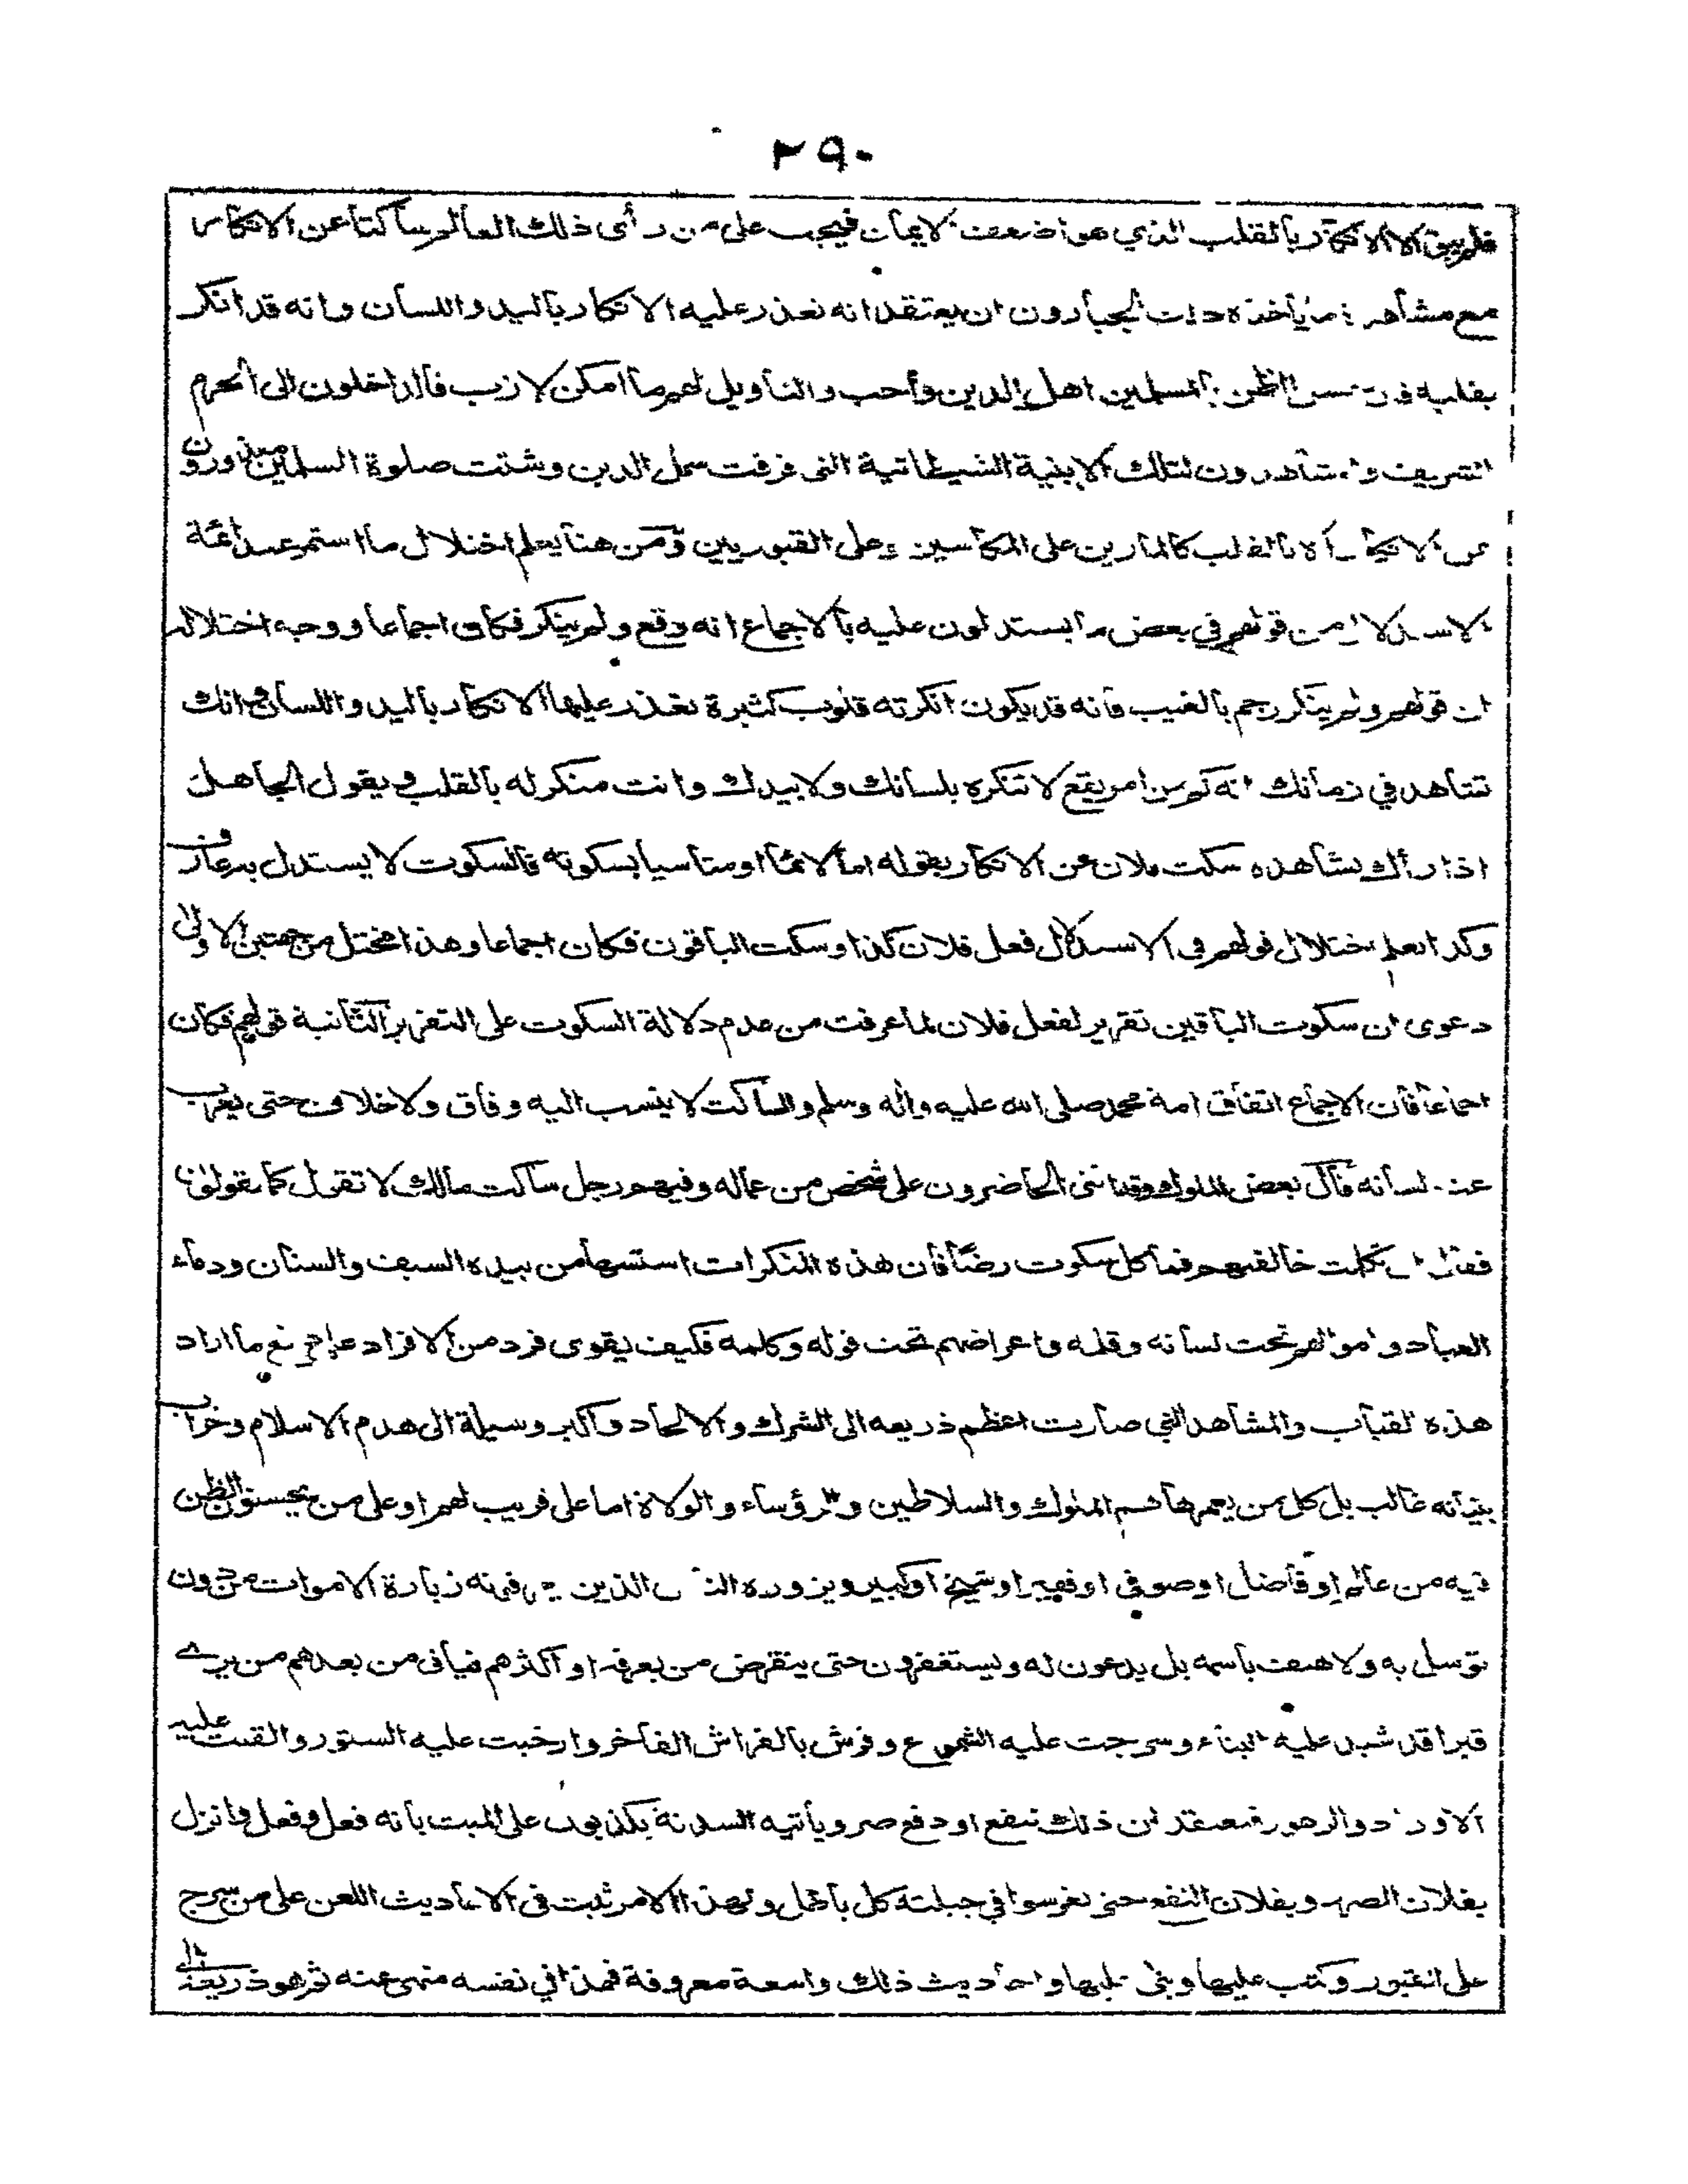 ٢٩٠
فلم يبق الا الانكار بالقلب الذي هو اضعف الايمان فيجب على من رأى ذلك العالم ساكتا عن الانكار
مع مشاهدة ما يأخذه ذلك الجبارون ان يعتقد انه تعذر عليه الانكار باليد واللسان وانه قد انكر
بقلبه فان حسن الظن بالمسلمين اهل الدين واجب والتأويل لهم ما امكن لازب فالداخلون الى الحرم
الشريف والمشاهدون لتلك الابنية الشيطانية التى فرقت شمل الدين وشتت صلوة المسلمين معذورون
عن الانكار الا بالقلب كالمارين على المكاسين وعلى القبوريين ومن هنا يعلم اختلال ما استمر عند ائمة
الاستدلال من قولهم في بعض ما يستدلون عليه بالاجماع انه وقع ولم ينكر فكان اجماعا ووجه اختلاله
ان قولهم ولم ينكر رجم بالغيب فانه قد يكون انكرته قلوب كثيرة تعذر عليها الانكار باليد واللسان وانك
تشاهد في زمانك انه كم من امر يقع لا تنكره بلسانك ولا بيدك وانت منكر له بالقلب ويقول الجاهل
اذا رأك تشاهده سكت فلان عن الانكار يقوله اما لائما او متأسيا بسكوته فالسكوت لا يستدل به عارف
وكذا يعلم اختلال قولهم في الاستدلال فعل فلان كذا وسكت الباقون فكان اجماعا وهذا مختل من جهتين الاولى
دعوى ان سكوت الباقين تقرير لفعل فلان لما عرفت من عدم دلالة السكوت على التقرير الثانية قولهم فكان
اجماعا فان الاجماع اتفاق امة محمد صلى الله عليه واله وسلم والساكت لا ينسب اليه وفاق ولا خلاف حتى يعرب
عنه لسانه قال بعض الملوك وقد اثنى الحاضرون على شخص من عماله وفيهم رجل ساكت مالك لا تقول كما يقولون
فقال ان تكلمت خالفتهم فما كل سكوت رضا فان هذه المنكرات اسسها من بيده السيف والسنان ودماء
العباد واموالهم تحت لسانه وقلمه واعراضهم تحت قوله وكلمه فكيف يقوى فرد من الافراد على منع ما اراد
هذه القباب والمشاهد التي صارت اعظم ذريعه الى الشرك والالحاد واكبر وسيلة الى هدم الاسلام وخراب
بنيانه غالب بل كل من يعمرها هم الملوك والسلاطين والرؤساء والولاة اما على قريب لهم او على من يحسنون الظن
فيه من عالم او فاضل او صوفي او فقير او شيخ او كبير ويزوره الناس الذين يعرفونه زيارة الاموات من دون
توسل به ولا هتف باسمه بل يدعون له ويستغفرون حتى ينقرض من يعرفه او اكثرهم فيأتى من بعدهم من يرى
قبرا قد شيد عليه البناء وسرجت عليه الشموع وفرش بالفراش الفاخر وارخيت عليه الستور والقيت عليه
الاوراد والزهور فيعتقد ان ذلك لنفع او دفع ضر ويأتيه السدنة يكذبون على الميت بانه فعل وفعل وانزل
بفلان الضر وبفلان النفع حتى يغرسوا في جبلته كل باطل ولهذا الامر ثبت فى الاحاديث اللعن على من سرج
على القبور وكتب عليها وبنى عليها واحاديث ذلك واسعة معروفة فهذا في نفسه منهى عنه ثم هو ذريعة الى